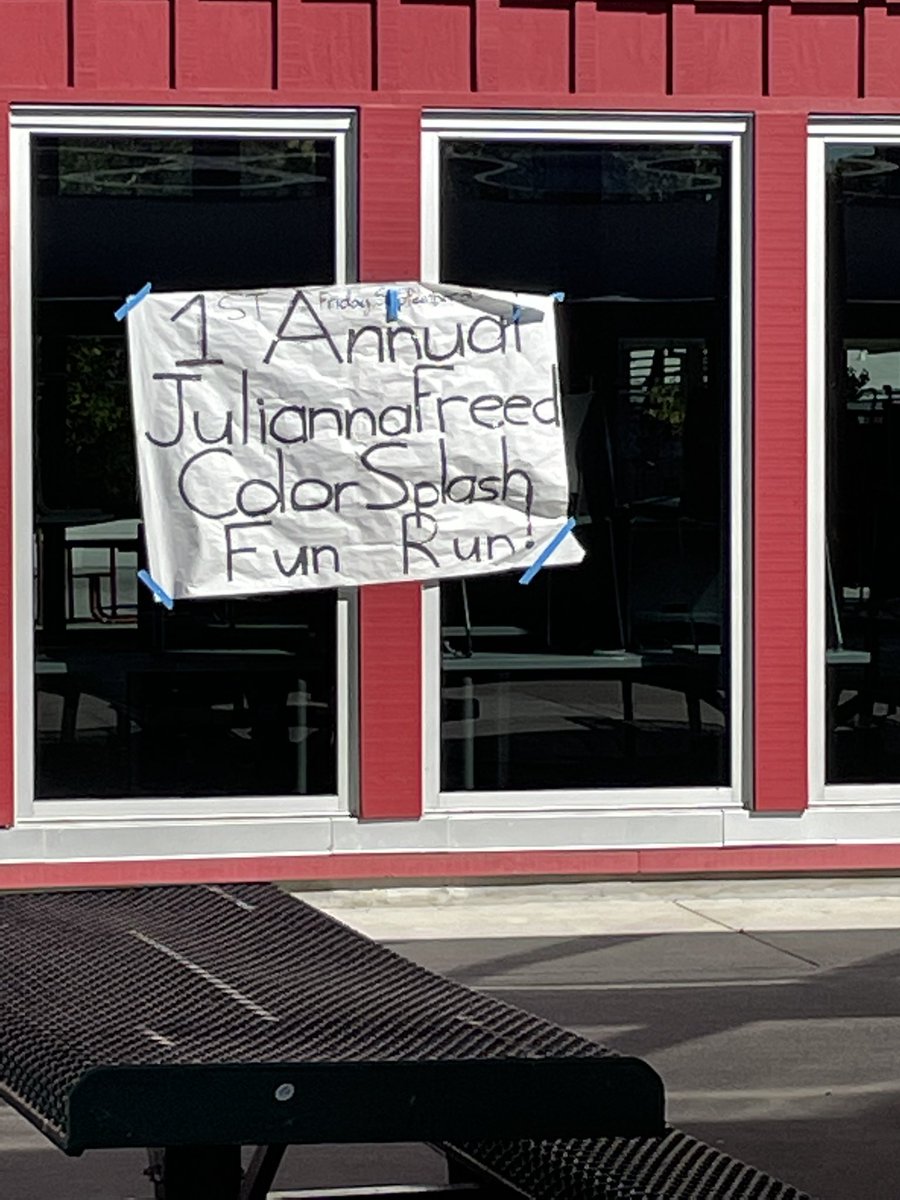 Friday September
1ST Annual
Julianna Freed
Color Splash
Fun Run!